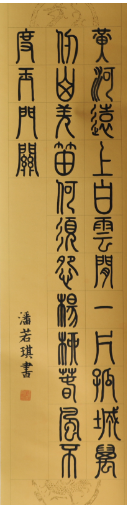 黃河遠上白雲閒一片孤城萬
仞山羌笛何須怨楊柳春風不
度玉門關
潘若琪書